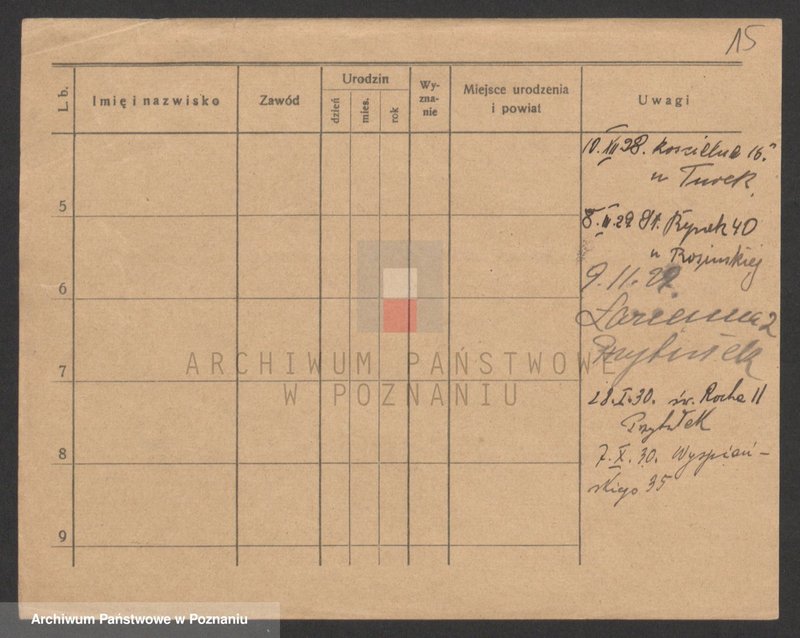 15
L. b.
Imię i nazwisko
Zawód
Urodzin
dzień
mies.
rok
Wy-
zna-
nie
Miejsce urodzenia
i powiat
Uwagi
10. XII 28. Kościelna 16.
u Turek.
5
8. II. 29. Rynek 40
u Rosińskiej
6
9.11.29.
2
Przybyłek
ARCHIWUM PAŃSTWOWE
W POZNANIU
7
28.I.30. św. Rocha 11
Przybyłek
8
7.X.30. Wyspiań-
skiego 35
9
Archiwum Państwowe w Poznaniu